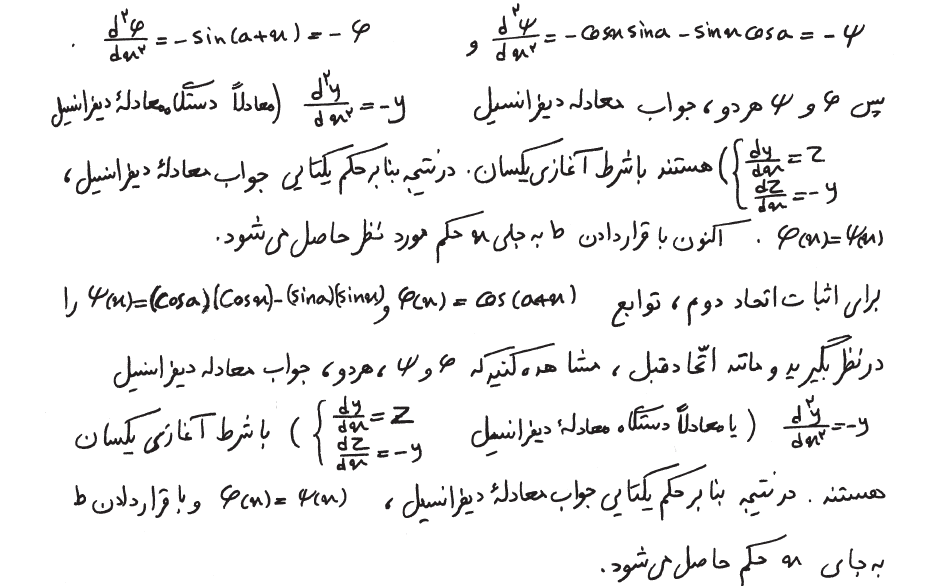 d²ψ/dx² = -cosx sina - sinx cosa = -ψ و d²φ/dx² = -sin(a+x) = -φ .
پس φ و ψ هر دو، جواب معادله دیفرانسیل d²y/dx² = -y (معادلاً دستگاه معادلهٔ دیفرانسیل
{ dy/dx = z , dz/dx = -y ) هستند با شرط آغازی یکسان. در نتیجه بنا بر حکم یکتایی جواب معادلهٔ دیفرانسیل،
φ(x)=ψ(x) . اکنون با قرار دادن b به جای x حکم مورد نظر حاصل می‌شود.
برای اثبات اتحاد دوم، توابع φ(x) = cos(a+x) و ψ(x)=(cosa)(cosx)-(sina)(sinx) را
در نظر بگیرید و مانند اتّحاد قبل، مشاهده کنید که φ و ψ، هر دو، جواب معادله دیفرانسیل
d²y/dx² = -y (یا معادلاً دستگاه معادلهٔ دیفرانسیل { dy/dx = z , dz/dx = -y ) با شرط آغازی یکسان
هستند. در نتیجه بنا بر حکم یکتایی جواب معادلهٔ دیفرانسیل، φ(x) = ψ(x) و با قرار دادن b
به جای x حکم حاصل می‌شود.